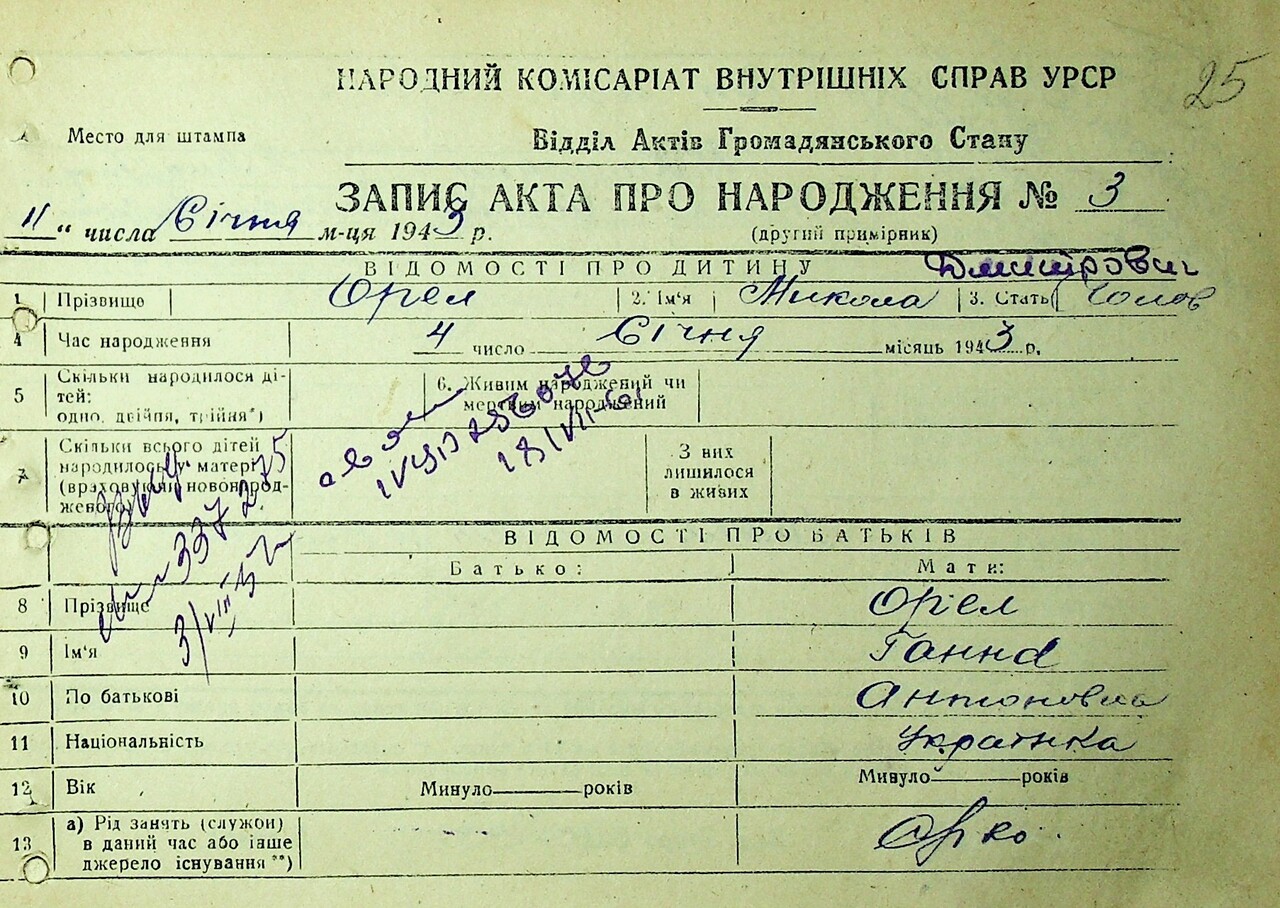 НАРОДНИЙ КОМІСАРІАТ ВНУТРІШНІХ СПРАВ УРСР
25
Место для штампа
Відділ Актів Громадянського Стану
ЗАПИС АКТА ПРО НАРОДЖЕННЯ № 3
11 " числа Січня м-ця 1943 р.
(другий примірник)
ВІДОМОСТІ ПРО ДИТИНУ
Дмитрович
1 Прізвище Орел 2. Ім'я Микола 3. Стать Чолов
4 Час народження 4 число Січня місяць 1943 р.
5 Скільки народилося дітей: одно, двійня, трійня*)
6. Живим народжений чи мертвим народжений
7 Скільки всього дітей народилось у матері (враховуючи новонародженого)
З них лишилося в живих
18/VII-61
337275
3/VIII 57
ВІДОМОСТІ ПРО БАТЬКІВ
Батько: Мати:
8 Прізвище Орел
9 Ім'я Ганна
10 По батькові Антоновна
11 Національність Українка
12 Вік Минуло років Минуло років
13 а) Рід занять (служби) в даний час або інше джерело існування **)